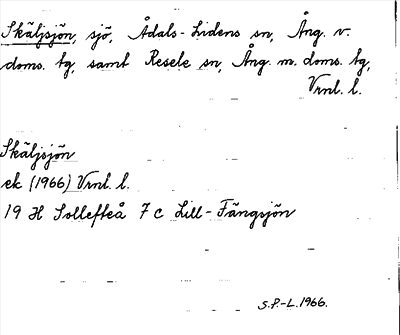 Skäljsjön, sjö, Ådals-Lidens sn, Ång. v.
doms. tg, samt Resele sn, Ång. m. doms. tg,
Vrnl. l.
Skäljsjön
ek (1966) Vrnl. l.
19 H Sollefteå 7 c Lill-Fängsjön
S.P.-L. 1966.